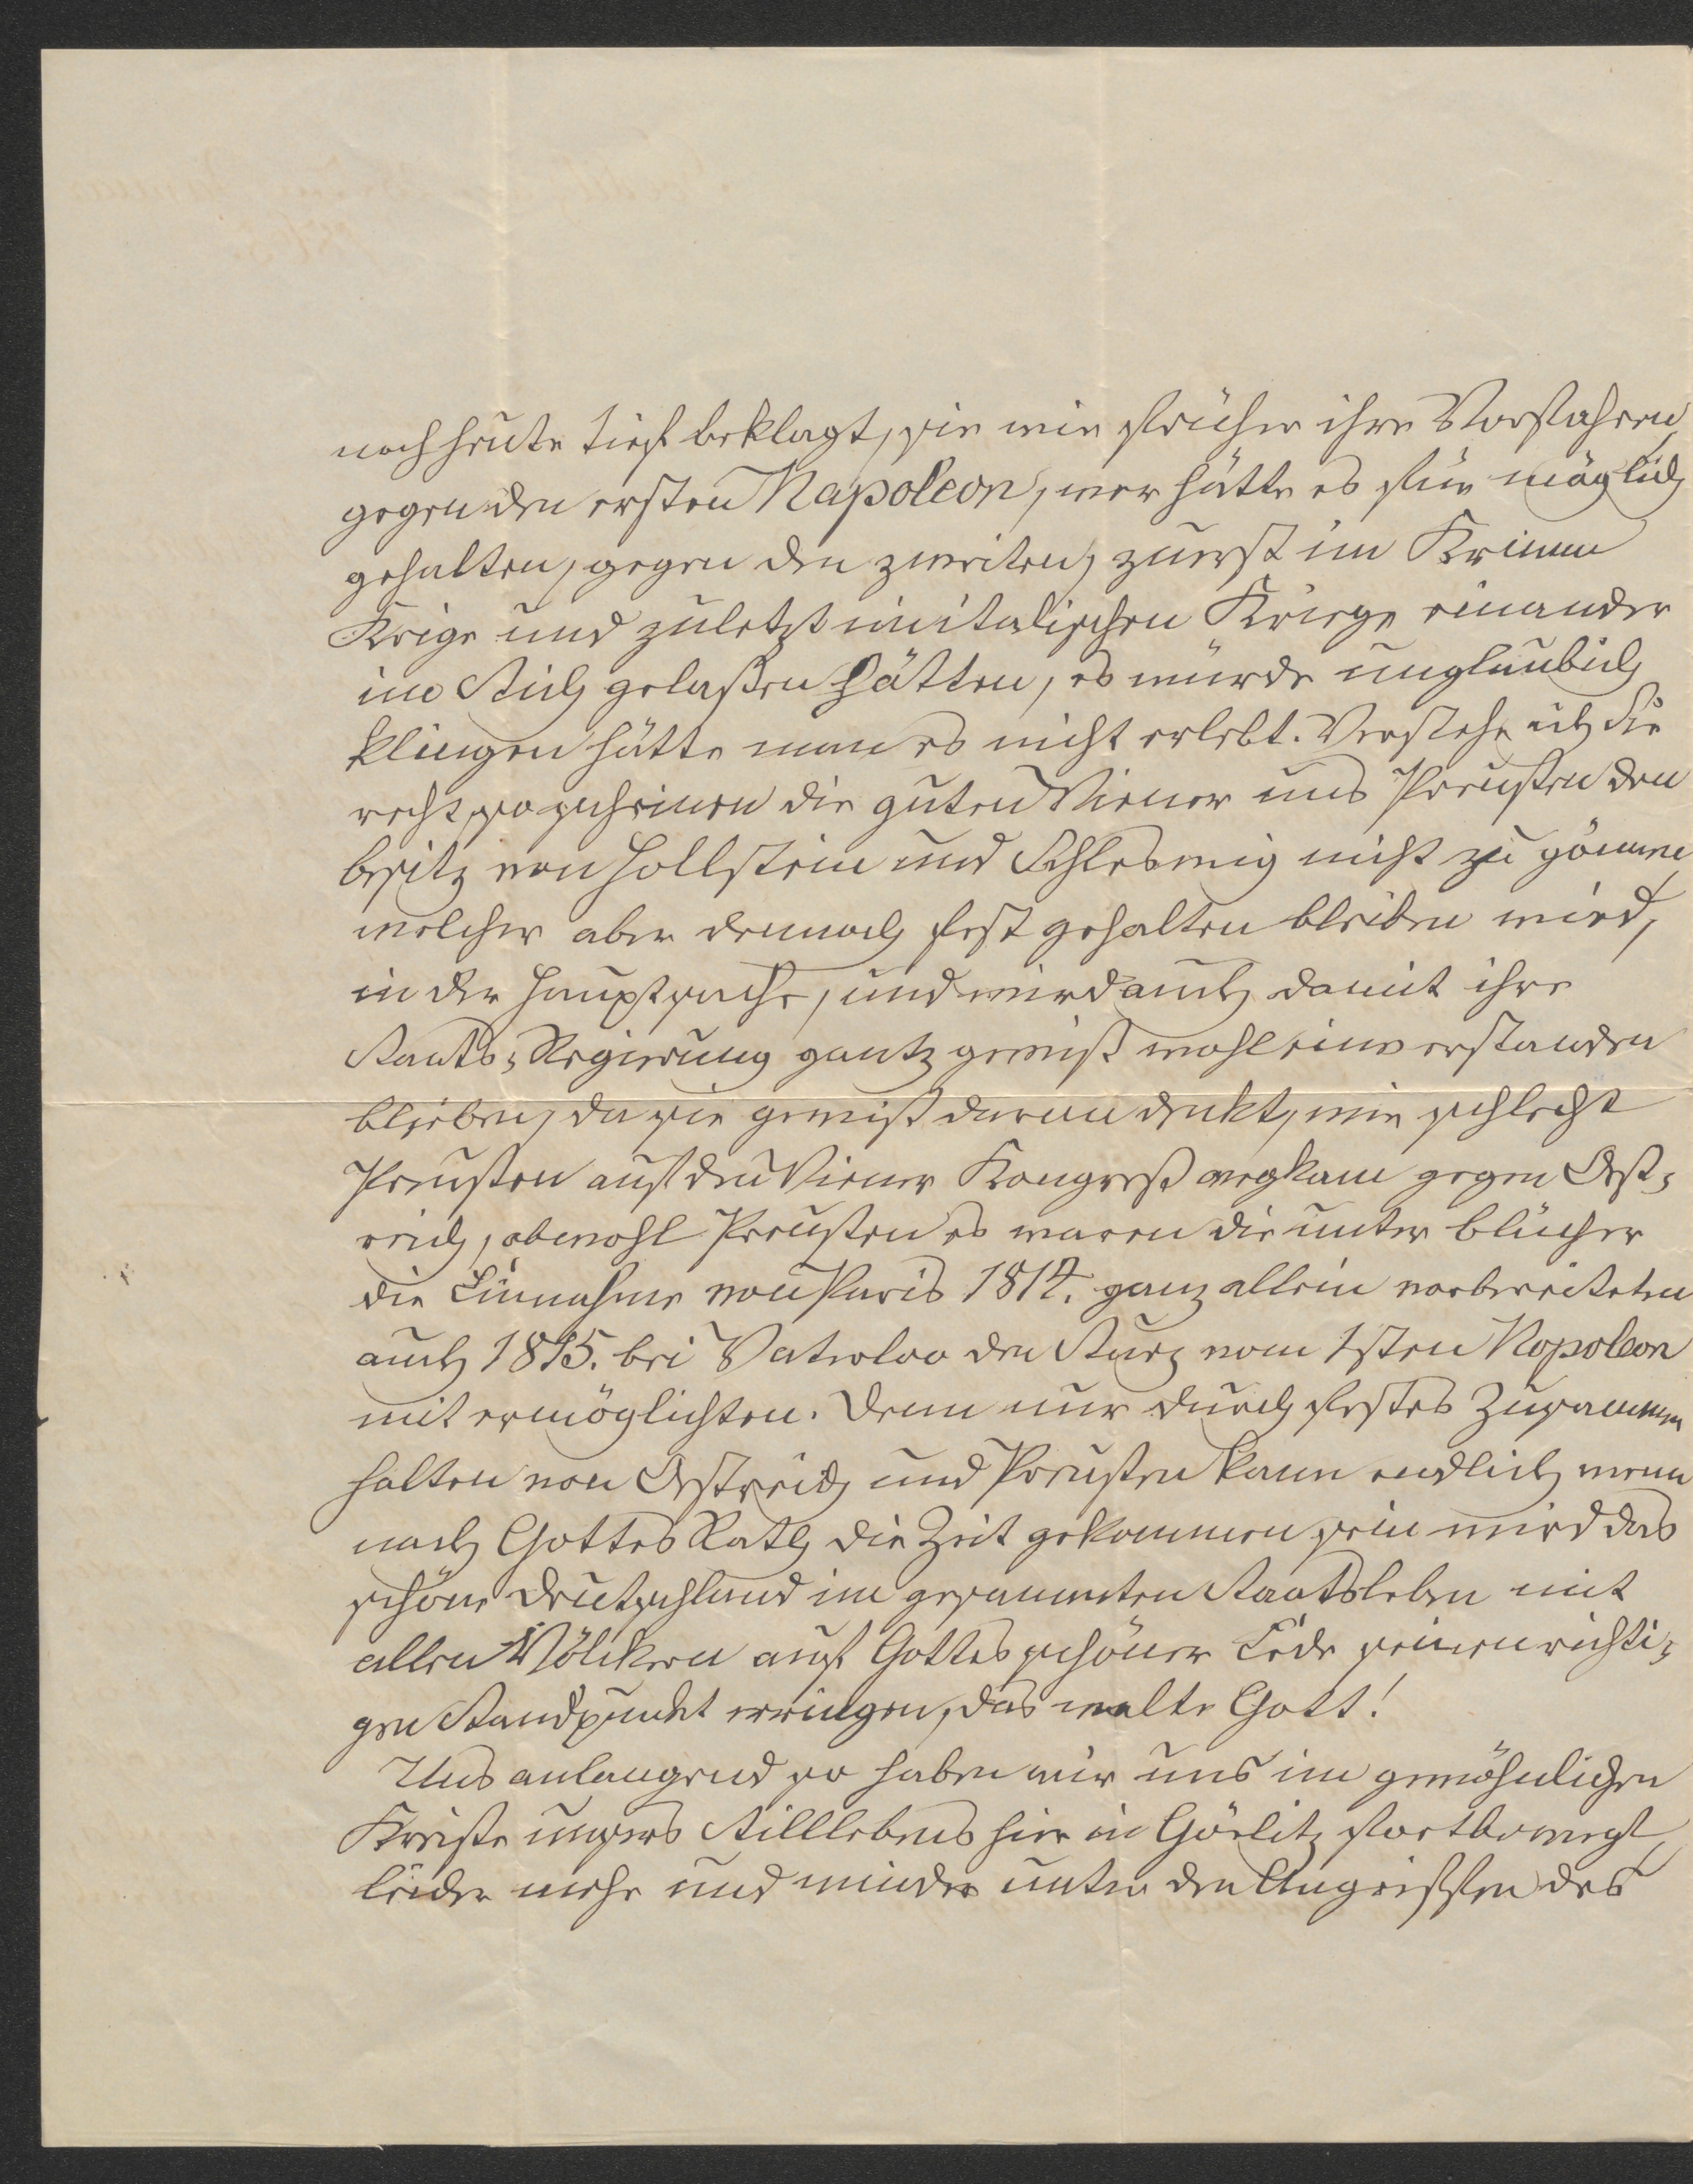 noch heute tief beklagt, sie wie früher ihre Vorfahren
gegen den ersten Napoleon, wer hätte es für möglich
gehalten, gegen den zweiten, zuerst im Krimm
Krige und zuletzt im italischen Kriege einander
im Stich gelaßen hätten, es würde unglaubich
klingen hätte man es nicht erlebt. Verstehe ich Sie
recht, so scheinen die guten Wiener uns Preußen den
besitz von Hollstein und Schleswig nicht zu gönnen,
welcher aber dennoch fest gehalten bleiben wird,
in der Hauptsache, und wird auch damit ihre
Staats-Regierung gantz gewiß wohl einverstanden
blieben, da sie gewiß daran denkt, wie schlecht
Preußen auf den Wiener Kongreß wegkam gegen Oest-
reich, obwohl Preußen es waren die unter blücher
die Einnahme von Paris 1814. ganz allein vorbereiteten
auch 1815. bei Waterloo den Sturz vom 1sten Napoleon
mit ermöglichten. Denn nur durch festes Zusammen
halten von Oestreich und Preußen kann endlich wenn
nach Gottes Rath die Zeit gekommen sein wird das
schöne Deutschland im gesammten Staatsleben mit
allen Völckern auf Gottes schöner Erde seinen richti-
gen Standpunkt erringen, das walte Gott!
Uns anlangend so haben wir uns im gewöhnlichen
Kreiße unsers Stilllebens hier in Görlitz fortbewegt,
leider mehr und minder unter den Angriffen des